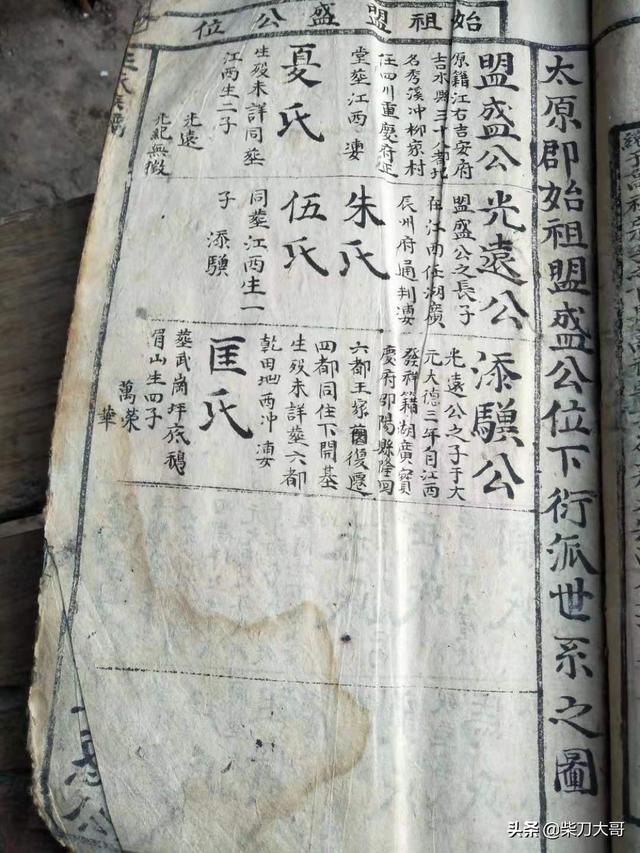 太原郡始祖盟盛公位下衍派世系之圖
始祖盟盛公位
盟盛公
原籍江右吉安府
吉水縣三十八都地
名秀溪冲柳家村
任四川重慶府正
堂葬江西 凄
夏氏
生殁未詳同葬
江西生二子
光遠
光紀無徵
光遠公
盟盛公之長子
在江西任湖廣
辰州府通判凄
朱氏
伍氏
同葬江西生一
子 添驥
添驥公
光遠公之子于大
元大德三年自江西
發神籍湖廣寳
慶府邵陽縣隆回
六都王家復遷
四都同住下開基
生殁未詳葬六都
乾田地西冲 凄
匡氏
葬武崗坪底鵝
眉山生四子
萬榮
華
头条 @柴刀大哥